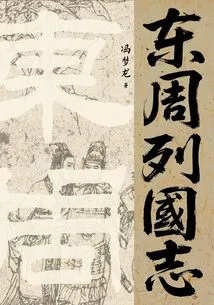 东周列國志
冯梦龙 著
東周